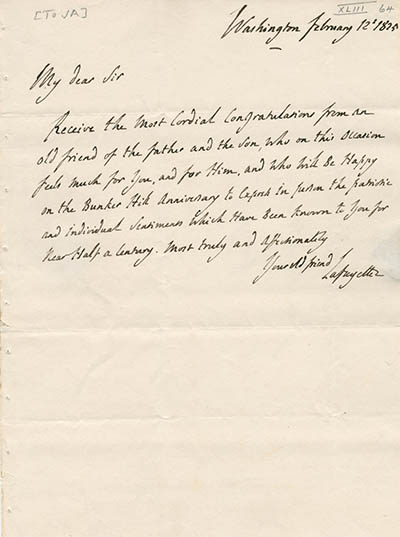 [To JA]
XLIII 64
Washington february 12d 1825
My dear Sir
Receive the Most Cordial Congratulations from an
old friend of the father and the son, who on this Occasion
feels much for You, and for Him, and who will Be Happy
on the Bunker Hill Anniversary to Express In person the patriotic
and individual Sentiments Which Have Been Known to You for
Near Half a Century. Most truly and Affectionately
Your old friend
Lafayette